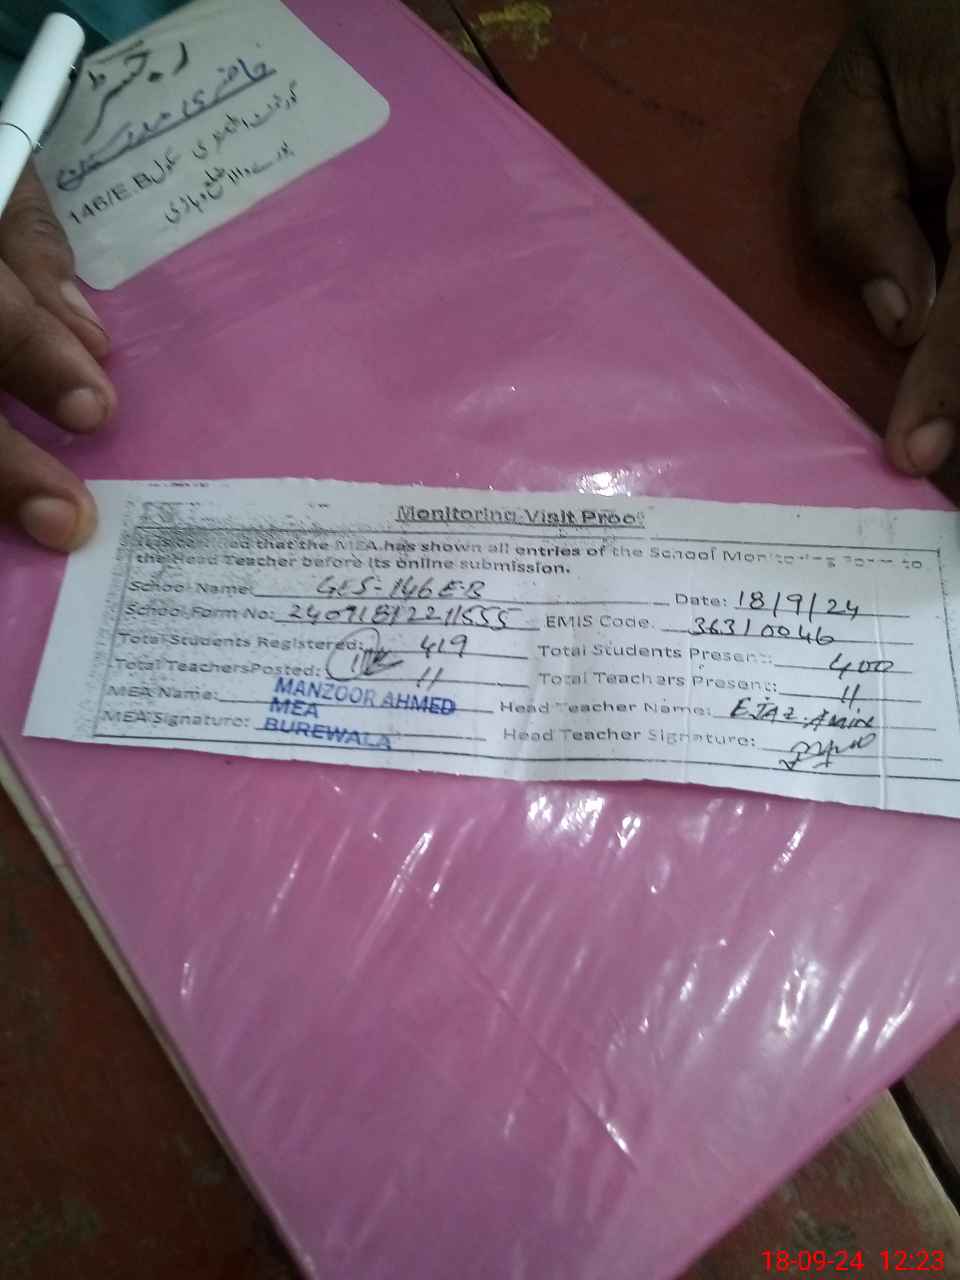 رجسٹر
حاضری مدرسین
گورنمنٹ ایلیمنٹری سکول 146/E.B
بورے والا ضلع وہاڑی
Monitoring Visit Proof
that the MEA has shown all entries of the School Monitoring Form to
the Head Teacher before its online submission.
School Name: GES-146 E-B Date: 18/9/24
School Form No: EMIS Code. 36310046
Total Students Registered: 419 Total Students Present: 400
Total Teachers Posted: 11 Total Teachers Present: 11
MEA Name: MANZOOR AHMED Head Teacher Name: EJAZ Amin
MEA
MEA Signature: BUREWALA Head Teacher Signature:
18-09-24 12:23